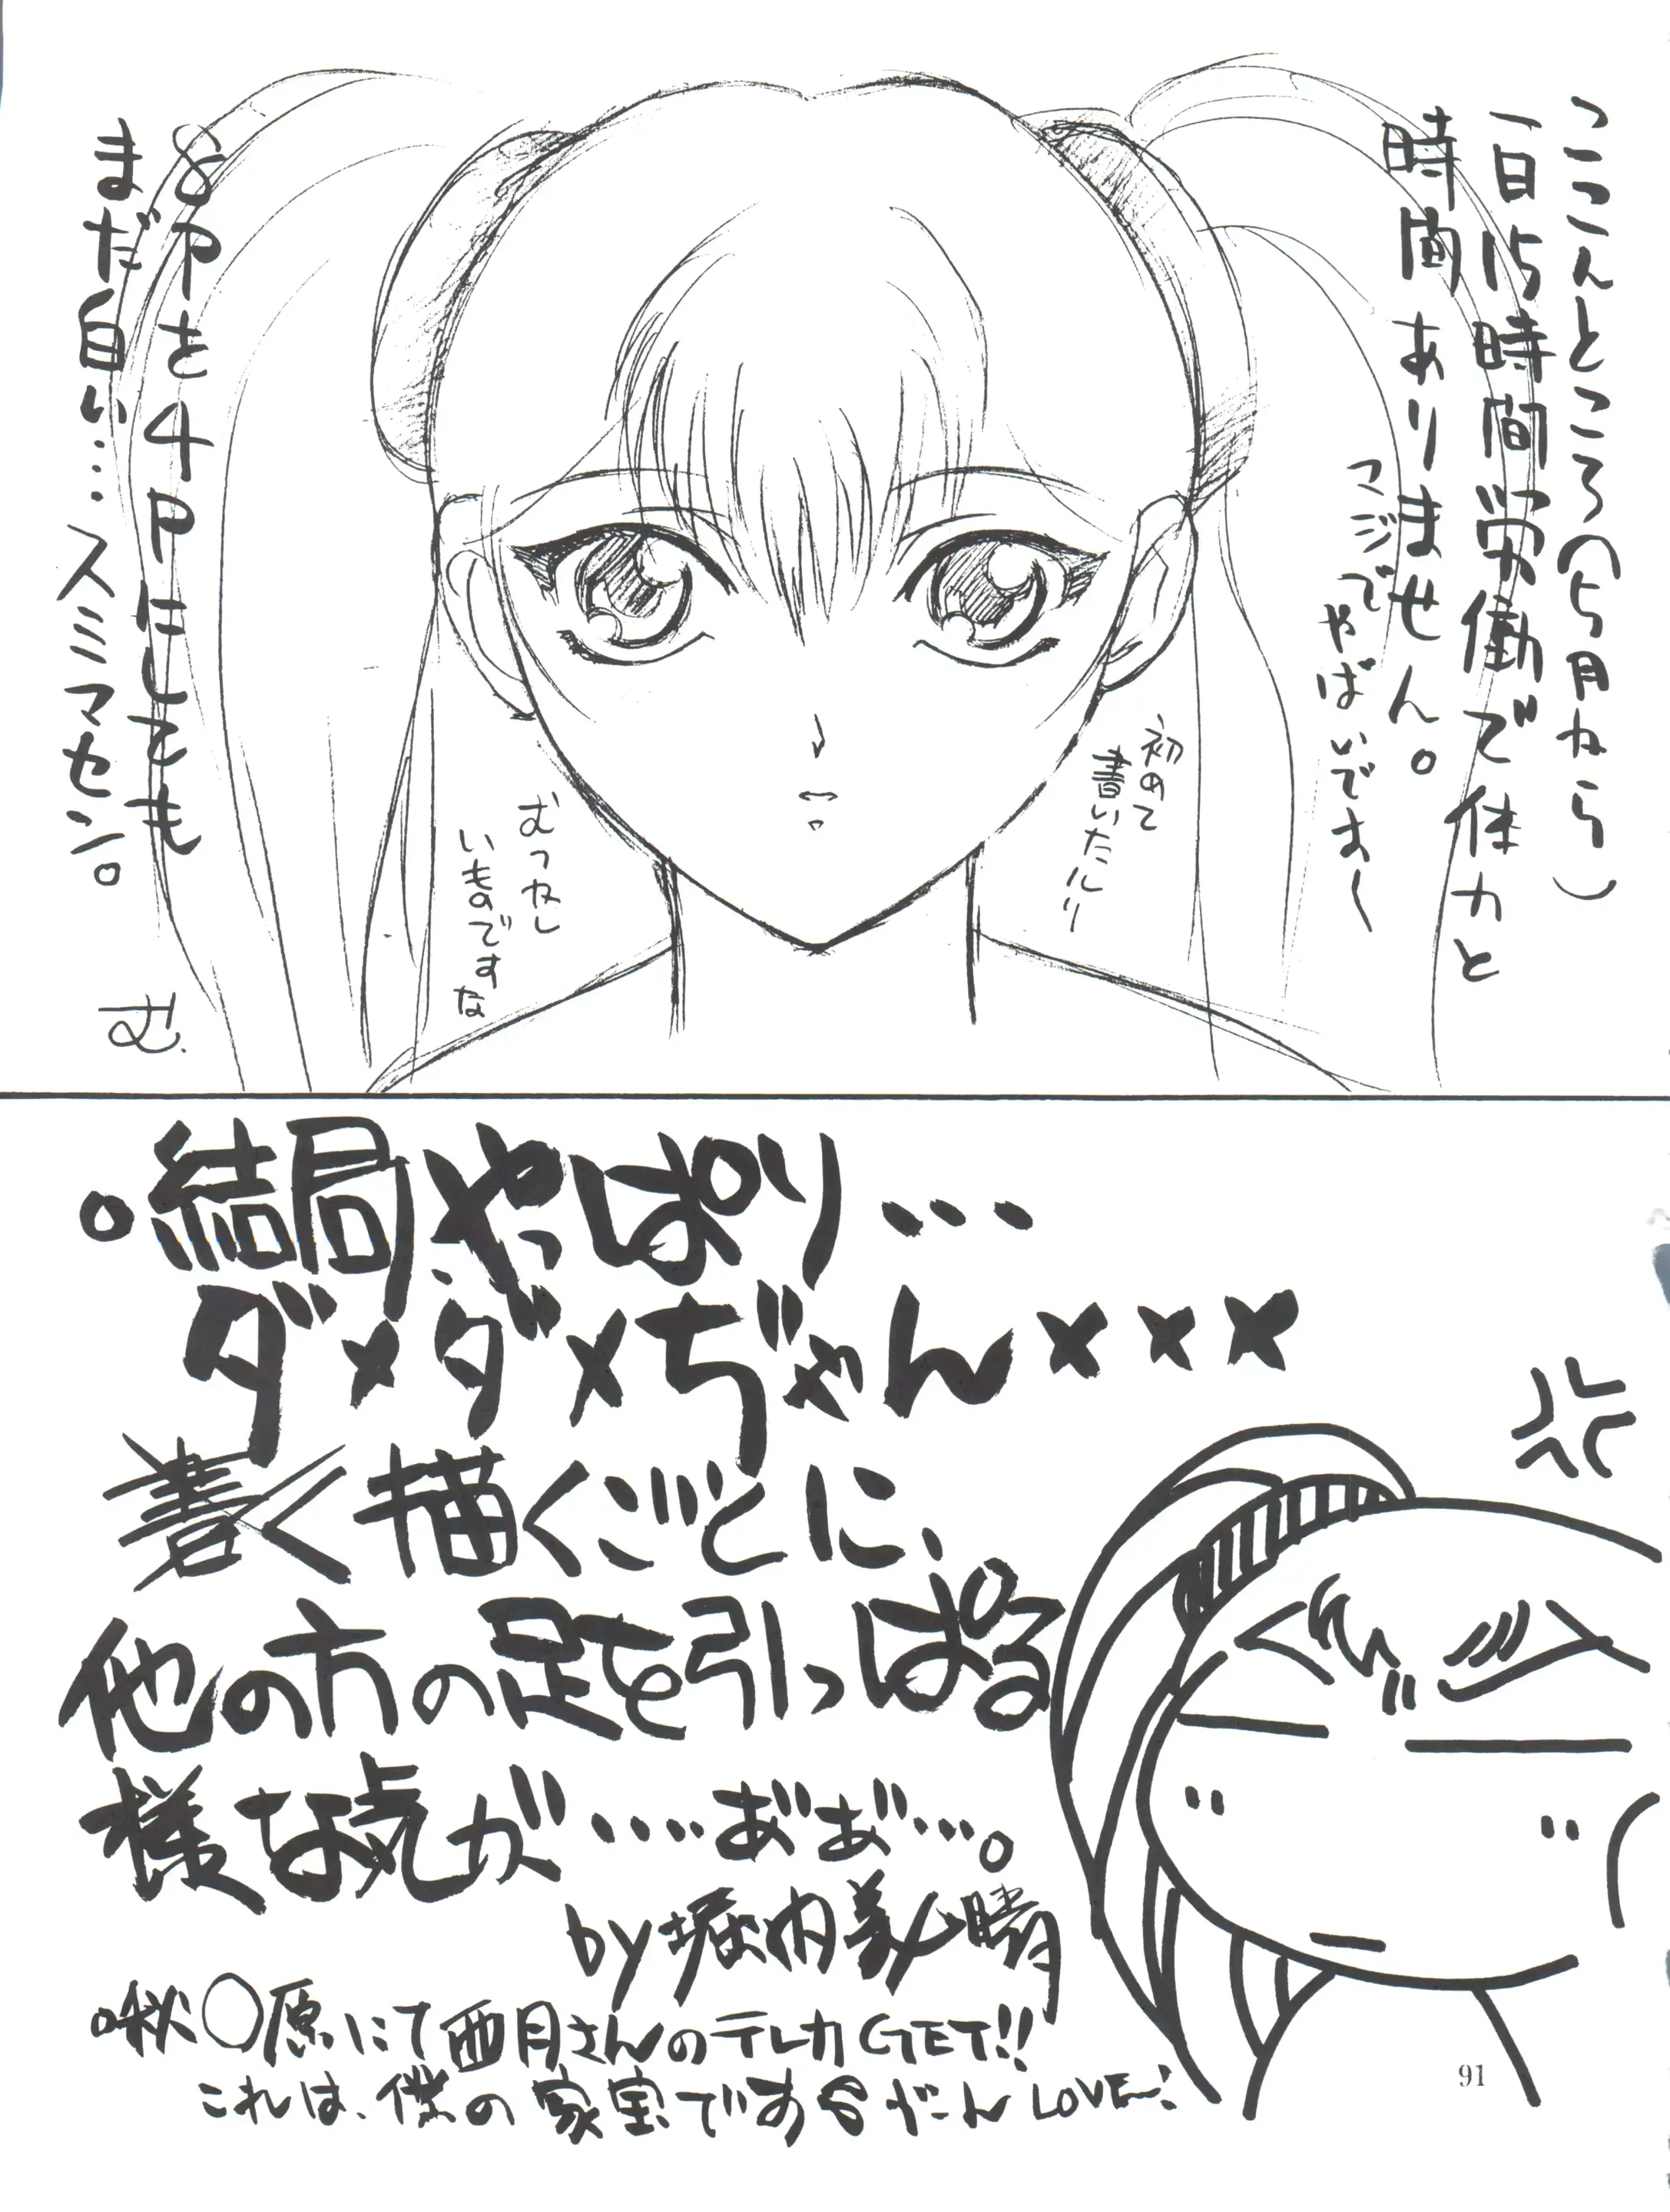 ここんところ(5月から)
一日15時間労働で体力と
時間ありません。
マジでやばいですー
初めて
書いたルリ
むつかし
いものですな
8Pを4Pにしても
まだ白い…スミマセン。
む.
○結局やっぱり…
ダメダメぢゃん×××
書く描くごとに、
他の方の足を引っぱる
様な気が‥‥あ゛あ゛…。
by堀内義晴
○秋〇原にて西月さんのテレカGET!!
これは、僕の家宝です
LOVE〜!
91